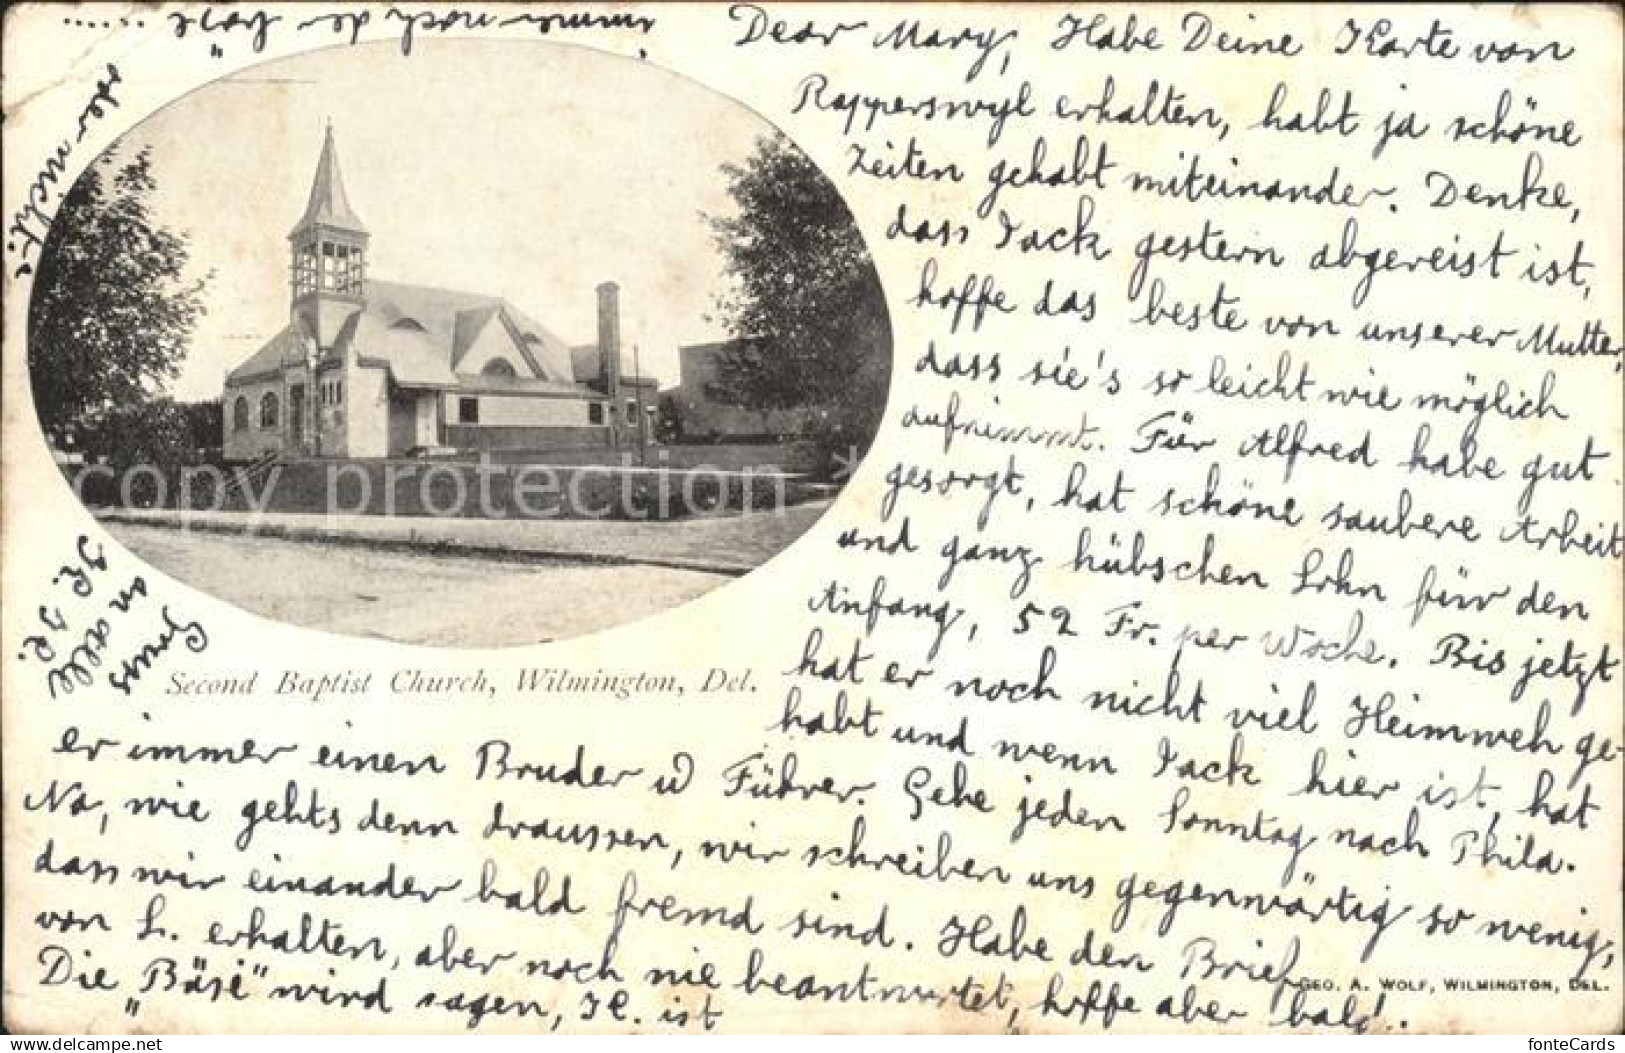 Dear Mary, Habe Deine Karte von
Rapperswyl erhalten, habt ja schöne
Zeiten gehabt miteinander. Denke,
dass Jack gestern abgereist ist,
hoffe das beste von unserer Mutter,
dass sie's so leicht wie möglich
aufnimmt. Für Alfred habe gut
gesorgt, hat schöne saubere Arbeit
und ganz hübschen Lohn für den
Anfang, 52 Fr. per Woche. Bis jetzt
hat er noch nicht viel Heimweh ge-
habt und wenn Jack hier ist, hat
er immer einen Bruder u Führer. Gehe jeden Sonntag nach Phila.
Na, wie gehts denn draussen, wir schreiben uns gegenwärtig so wenig,
dass wir einander bald fremd sind. Habe den Brief
von L. erhalten, aber noch nie beantwortet, hoffe aber bald.
Die „Bäsi" wird sagen, K. ist
immer noch der horst ......
oder nicht.
Gruss
an alle
K. K.
Second Baptist Church, Wilmington, Del.
GEO. A. WOLF, WILMINGTON, DEL.
copy protection *
www.delcampe.net
fonteCards